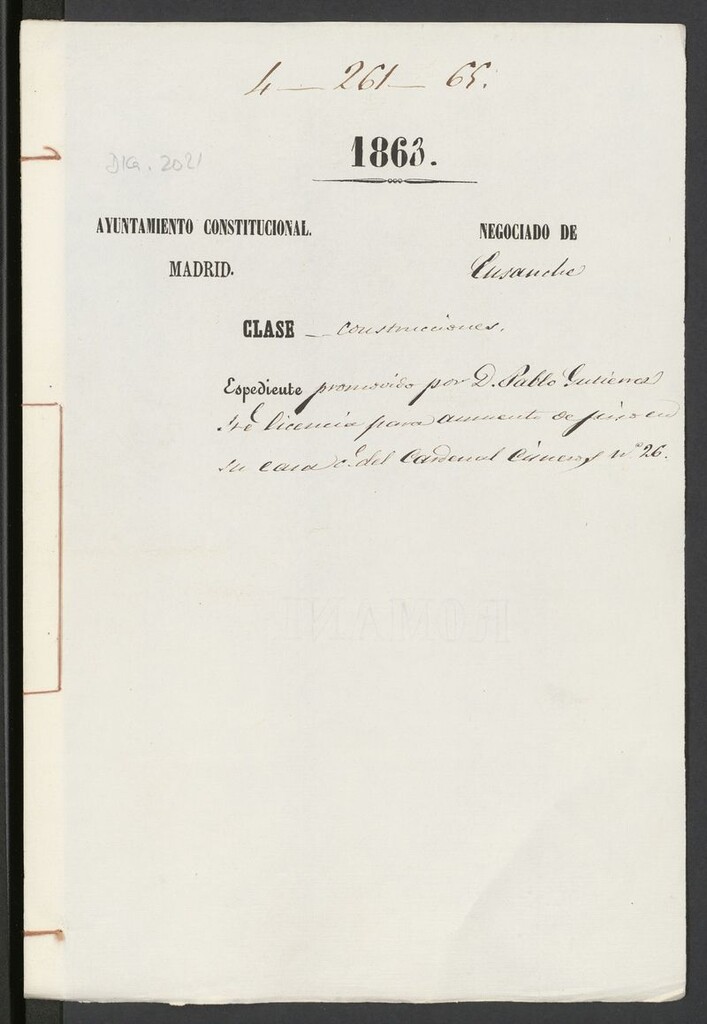 4 — 261 — 65.
1863.
DIG. 2021
AYUNTAMIENTO CONSTITUCIONAL.
MADRID.
NEGOCIADO DE
Ensanche
CLASE construcciones.
Espediente promovido por D. Pablo Gutierrez
licencia para aumento de piso en
su casa c.e del Cardenal Cisneros n.o 26.
ROMANI